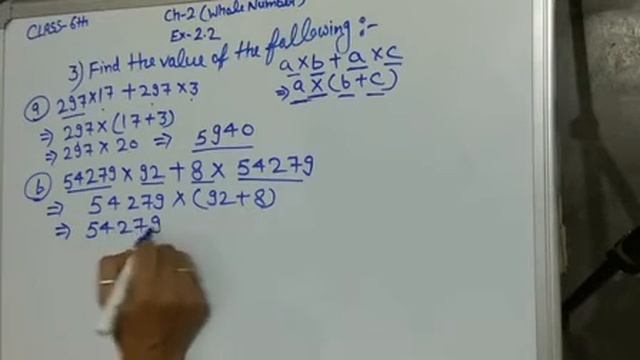 CLASS-6th
Ch-2 (Whole Number)
Ex-2.2
3) Find the value of the following :-
a×b + a×c
⇒ a×(b+c)
(a) 297×17 + 297×3
⇒ 297×(17+3)
⇒ 297×20 ⇒ 5940
(b) 54279×92 + 8×54279
⇒ 54279×(92+8)
⇒ 54279